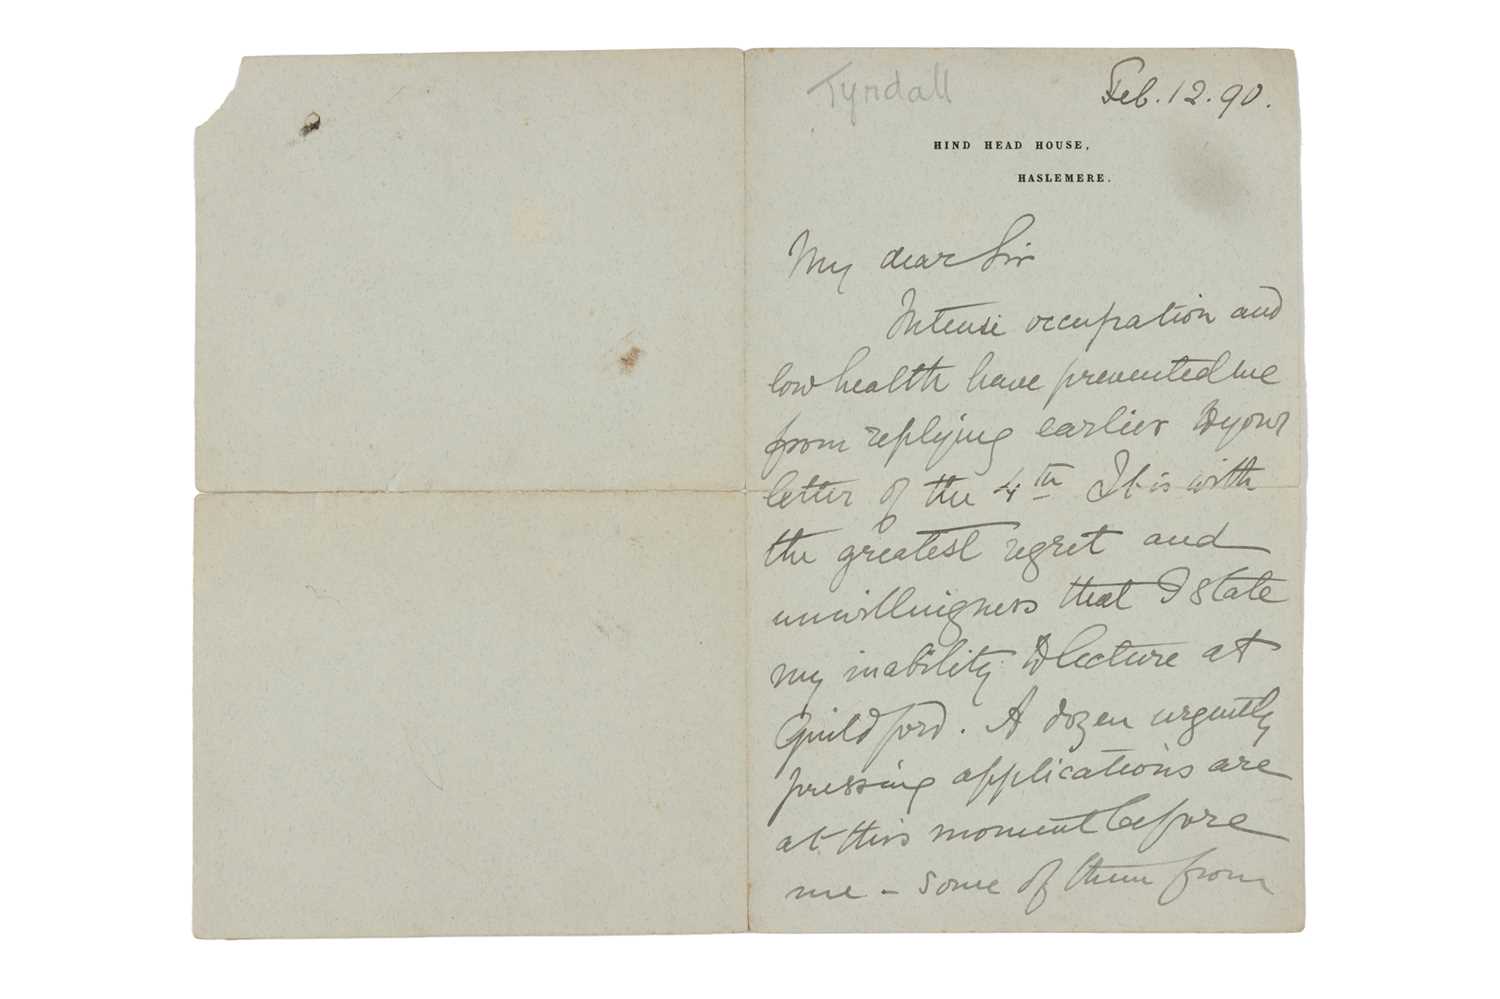 Tyndall
Feb. 12. 90.
HIND HEAD HOUSE,
HASLEMERE.
My dear Sir
Intense occupation and
low health have prevented me
from replying earlier to your
letter of the 4th It is with
the greatest regret and
unwillingness that I state
my inability to lecture at
Guildford. A dozen urgently
pressing applications are
at this moment before
me – some of them from